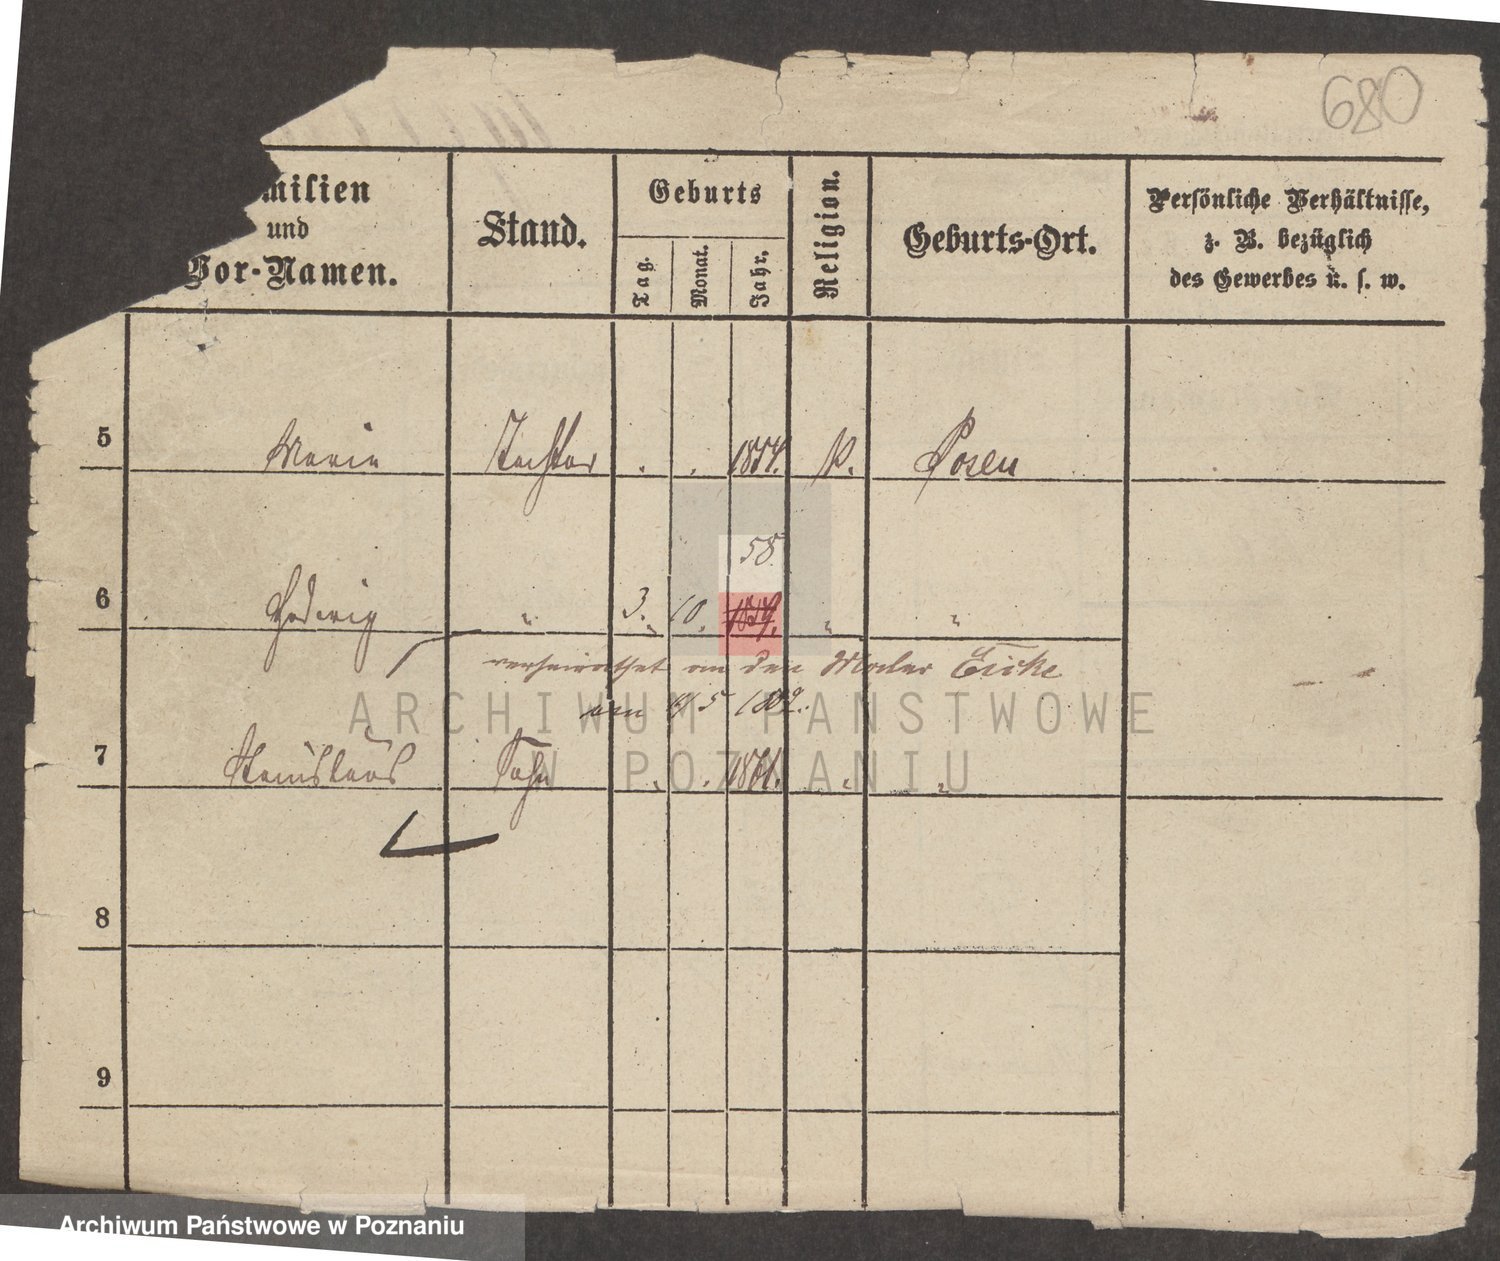 680
milien
und
Vor-Namen.
Stand.
Geburts
Tag.
Monat.
Jahr.
Religion.
Geburts-Ort.
Persönliche Verhältnisse,
z. B. bezüglich
des Gewerbes u. s. w.
5 Marie Tochter . . 1854. K. Posen
58.
6 Hedwig " 3. 10. 1859. " "
verheirathet an den Maler Eicke
am 5
7 Stanislaus Sohn . . 1861. " "
8
9
ARCHIWUM PAŃSTWOWE
W POZNANIU
Archiwum Państwowe w Poznaniu